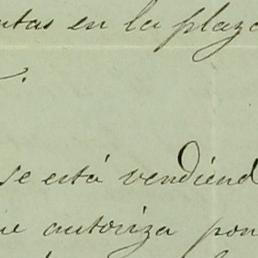 ntas en la plaza
se está vendiend
ue autoriza por